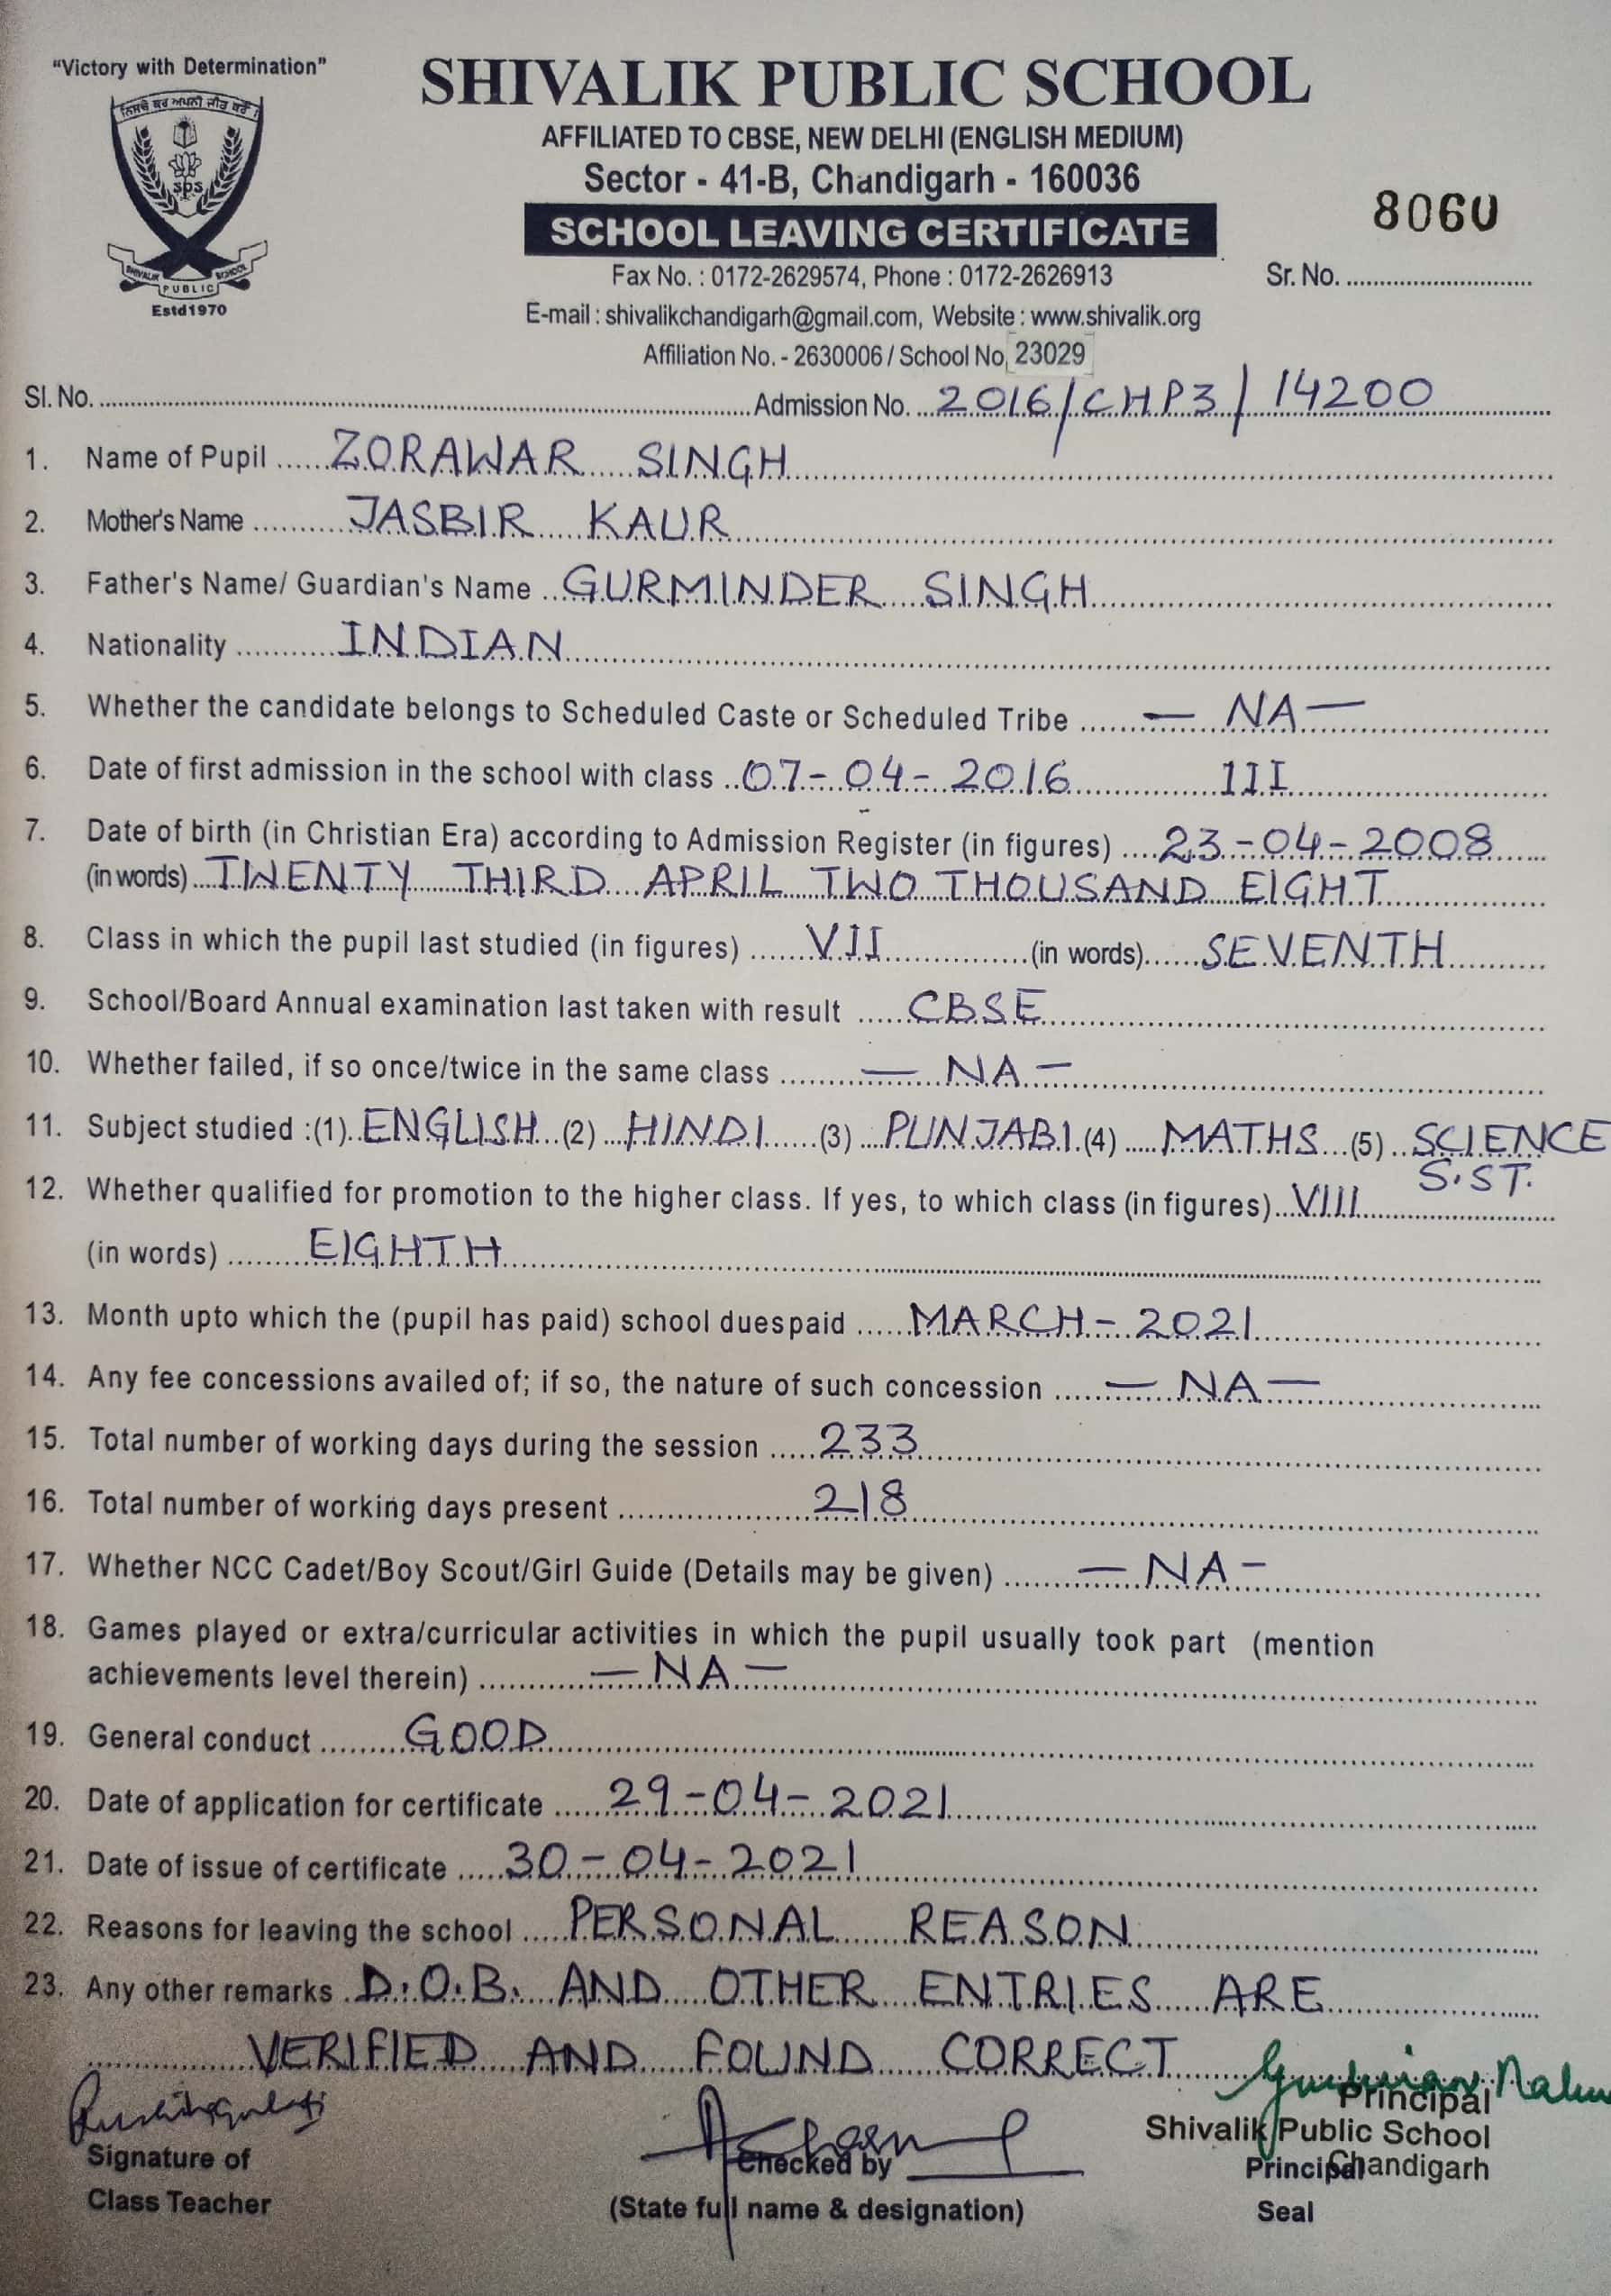 "Victory with Determination"
SHIVALIK PUBLIC SCHOOL
AFFILIATED TO CBSE, NEW DELHI (ENGLISH MEDIUM)
Sector - 41-B, Chandigarh - 160036
SCHOOL LEAVING CERTIFICATE
8060
Fax No. : 0172-2629574, Phone : 0172-2626913
Sr. No. ..............................
E-mail : shivalikchandigarh@gmail.com, Website : www.shivalik.org
Affiliation No. - 2630006 / School No. 23029
SPS
SHIVALIK PUBLIC SCHOOL
Estd1970
Sl. No. .............................. Admission No. 2016/CHP3/14200
1. Name of Pupil ZORAWAR SINGH
2. Mother's Name JASBIR KAUR
3. Father's Name/ Guardian's Name GURMINDER SINGH
4. Nationality INDIAN
5. Whether the candidate belongs to Scheduled Caste or Scheduled Tribe — NA —
6. Date of first admission in the school with class 07-04-2016 III
7. Date of birth (in Christian Era) according to Admission Register (in figures) 23-04-2008
(in words) TWENTY THIRD APRIL TWO THOUSAND EIGHT
8. Class in which the pupil last studied (in figures) VII (in words) SEVENTH
9. School/Board Annual examination last taken with result CBSE
10. Whether failed, if so once/twice in the same class — NA —
11. Subject studied :(1) ENGLISH (2) HINDI (3) PUNJABI (4) MATHS (5) SCIENCE
S.ST.
12. Whether qualified for promotion to the higher class. If yes, to which class (in figures) VIII
(in words) EIGHTH
13. Month upto which the (pupil has paid) school duespaid MARCH - 2021
14. Any fee concessions availed of; if so, the nature of such concession — NA —
15. Total number of working days during the session 233
16. Total number of working days present 218
17. Whether NCC Cadet/Boy Scout/Girl Guide (Details may be given) — NA —
18. Games played or extra/curricular activities in which the pupil usually took part (mention
achievements level therein) — NA —
19. General conduct GOOD
20. Date of application for certificate 29-04-2021
21. Date of issue of certificate 30-04-2021
22. Reasons for leaving the school PERSONAL REASON
23. Any other remarks D.O.B. AND OTHER ENTRIES ARE
VERIFIED AND FOUND CORRECT
Principal
Shivalik Public School
Chandigarh
Signature of
Class Teacher
Checked by
(State full name & designation)
Principal
Seal